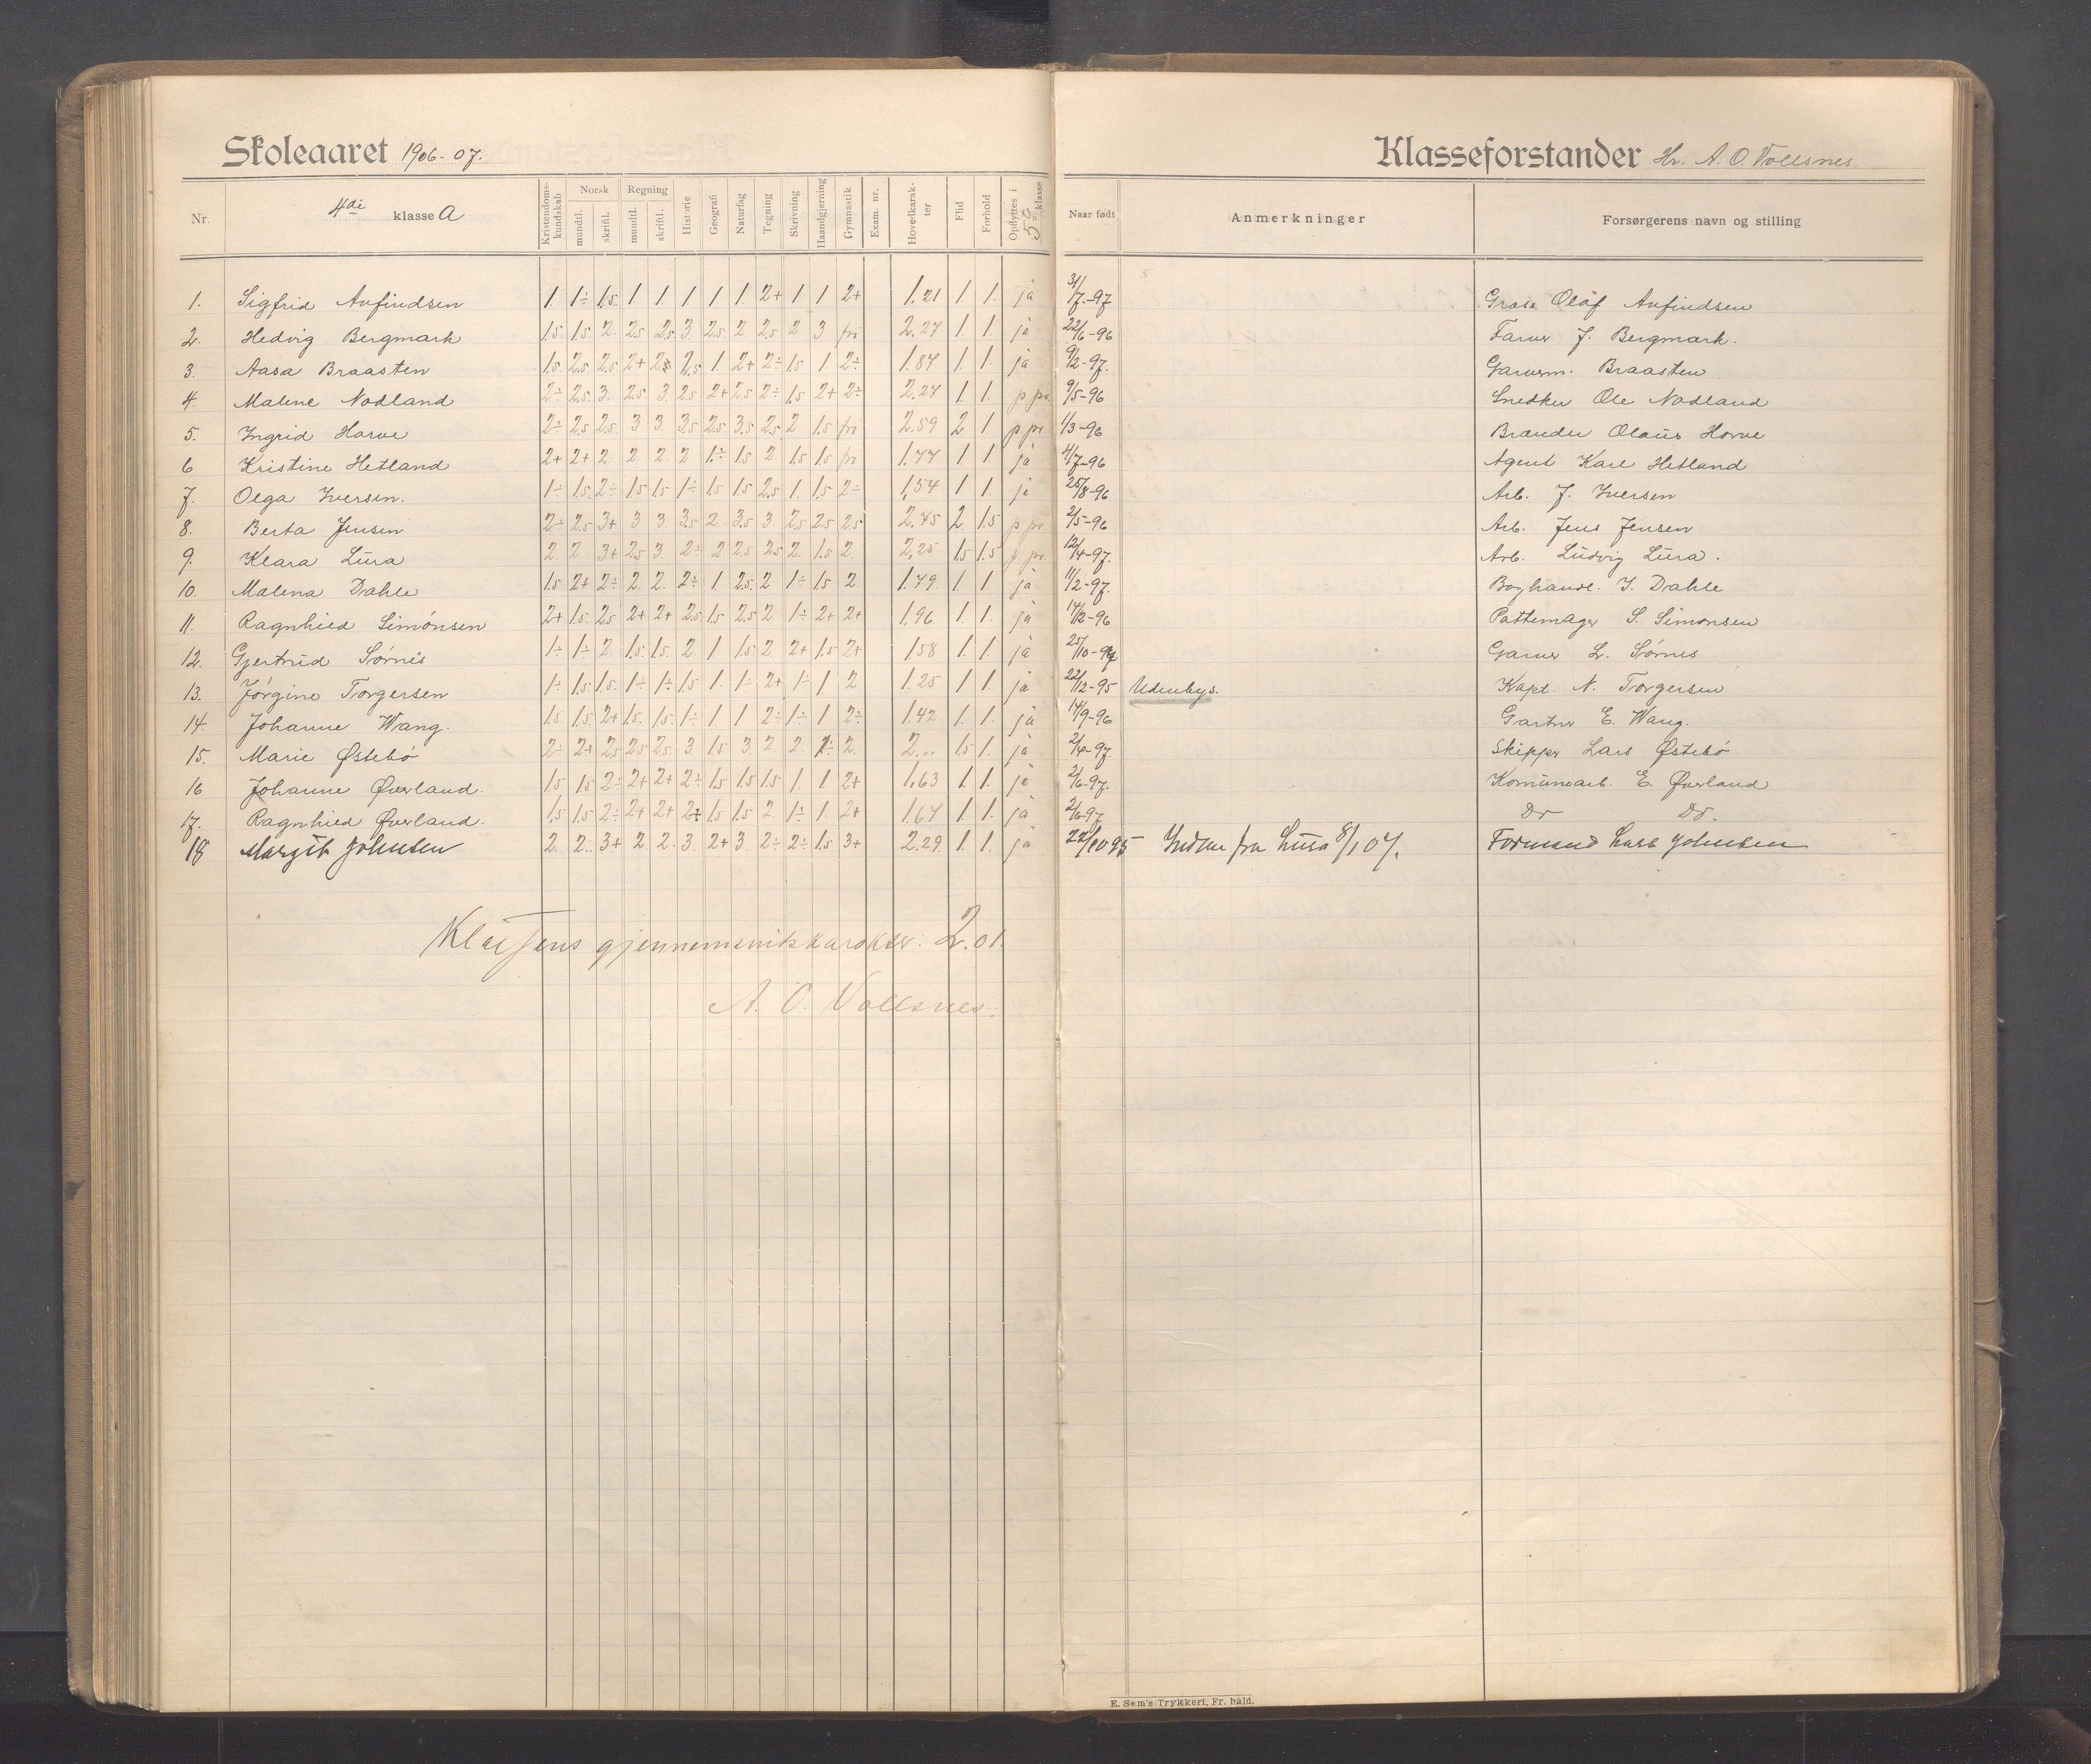 Skoleaaret 1906-07.
Klasseforstander Hr. A. O. Vollsnes.
Nr. 4de klasse A Kristendomskundskab Norsk mundtl. skriftl. Regning mundtl. skriftl. Historie Geografi Naturfag Tegning Skrivning Haandgjerning Gymnastik Exam. nr. Hovedkarakter Flid Forhold Opflyttes i 5te klasse Naar født Anmerkninger Forsørgerens navn og stilling
1. Sigfrid Anfindsen 1 1÷ 1.5 1 1 1 1 1 2+ 1 1 2+ 1.21 1 1 ja 31/7-97 Olaf Anfindsen
2. Hedvig Bergmark 1.5 1.5 2 2.5 2.5 3 2.5 2 2.5 2 3 fri 2.27 1 1 ja 22/6-96 J. Bergmark.
3. Aasa Braasten 1.5 2.5 2.5 2+ 2.5 1.5 1 2+ 2÷ 1.5 1 2÷ 1.87 1 1 ja 9/2-97. Garverm. Braasten
4. Malene Nodland 2÷ 2.5 3 2.5 3 2.5 2+ 2.5 2÷ 1.5 2+ 2÷ 2.27 1 1 p pr. 9/5-96 Snedker Ole Nodland
5. Ingrid Horve 2÷ 2.5 2.5 3 3 3.5 2.5 3.5 2.5 2 1.5 fri 2.59 2 1 p pr. 1/3-96 Brænder Olaus Horve
6 Kristine Hetland 2+ 2+ 2 2 2 2 1÷ 1.5 2 1.5 1.5 fri 1.77 1 1 ja 4/7-96 Agent Karl Hetland
7. Olga Iversen. 1÷ 1.5 2÷ 1.5 1.5 1÷ 1.5 1.5 2.5 1 1.5 2÷ 1.54 1 1 ja 25/8-96 Arb. J. Iversen
8. Berta Jensen 2÷ 2.5 3+ 3 3 3.5 2 3.5 3 2.5 2.5 2.5 2.75 2 1.5 p pr. 2/5-96 Arb. Jens Jensen
9. Klara Lura 2 2 3+ 2.5 3 2÷ 2 2.5 2.5 2 1.5 2 2.25 1.5 1.5 p pr. 12/4-97. Arb. Ludvig Lura.
10. Malena Dahle 1.5 2+ 2÷ 2 2 2÷ 1 2.5 2 1÷ 1.5 2 1.79 1 1 ja 11/2-97. Boghandl. I. Dahle
11. Ragnhild Simonsen 2+ 1.5 2.5 2+ 2+ 2.5 1.5 2.5 2 1÷ 2+ 2+ 1.96 1 1 ja 14/12-96 Pottemager S. Simonsen
12. Gjertrud Sørnes 1÷ 1÷ 2 1.5 1.5 2 1 1.5 2 2+ 1.5 2+ 1.58 1 1 ja 25/10-96 Garver L. Sørnes
13. Jørgine Torgersen 1÷ 1.5 1.5 1÷ 1÷ 1.5 1 1÷ 2+ 1÷ 1 2 1.25 1 1 ja 22/12-95 Udenbys. Kapt. N. Torgersen
14. Johanne Wang. 1.5 1.5 2+ 1.5 1.5 1÷ 1 1 2÷ 1÷ 1 2÷ 1.42 1 1 ja 14/9-96 Gartner E. Wang.
15. Marie Østebø 2÷ 2+ 2.5 2.5 2.5 3 1.5 3 2 2 1÷ 2 2... 1.5 1 ja 2/4-97. Skipper Lars Østebø
16 Johanne Øverland. 1.5 1.5 2÷ 2+ 2+ 2÷ 1.5 1.5 1.5 1 1 2+ 1.63 1 1 ja 2/6-97. Komunearb. E. Øverland
17. Ragnhild Øverland. 1.5 1.5 2÷ 2+ 2+ 2÷ 1.5 1.5 2 1÷ 1 2+ 1.67 1 1 ja 2/6-97 Do Do.
18 Margit Johnsen 2 2 3+ 2 2 3 2+ 3 2÷ 2÷ 1.5 3+ 2.29 1 1 ja 22/10 95 fra Lura 8/1 07. Formand Lars Johnsen
Klassens gjennemsnitskarakter: 2.01.
A. O. Vollsnes.
E. Sem's Trykkeri, Fr. hald.